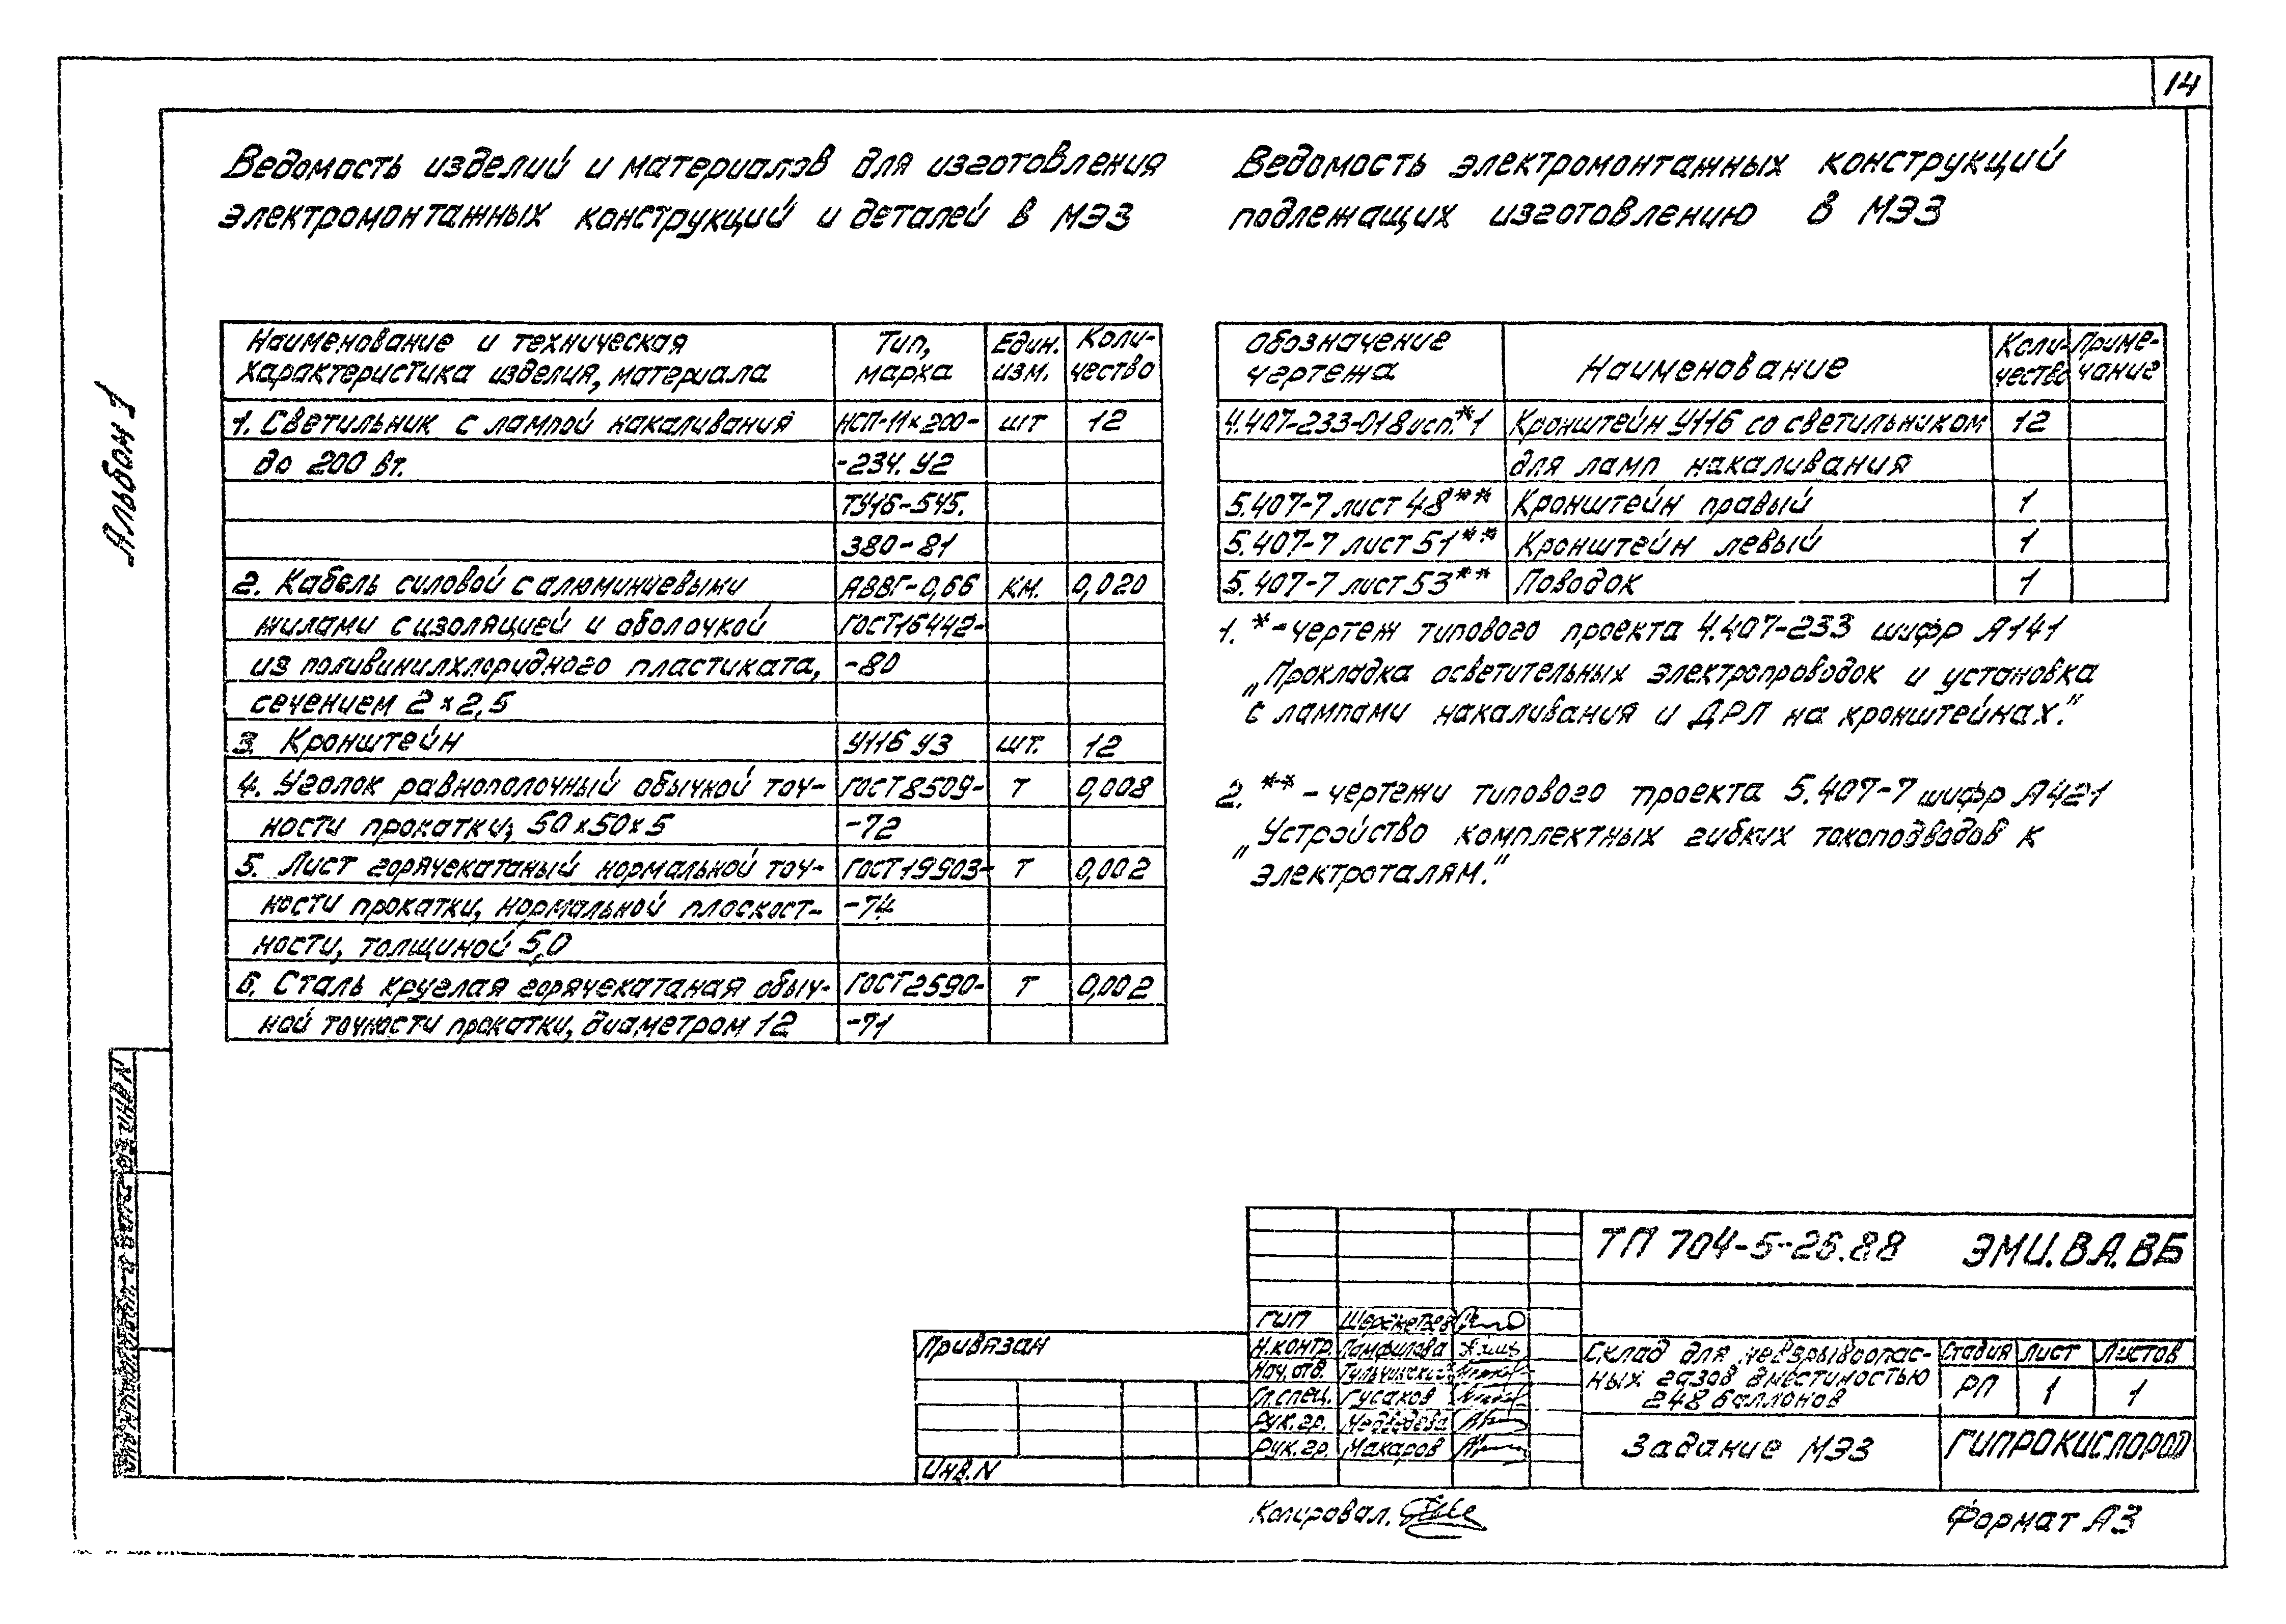 14
Альбом 1
Ведомость изделий и материалов для изготовления
электромонтажных конструкций и деталей в МЭЗ
Наименование и техническая характеристика изделия, материала | Тип, марка | Един. изм. | Коли-чество
1. Светильник с лампой накаливания | НСП-11×200- | шт | 12
до 200 вт. | -234. У2
ТУ16-545.
380-81
2. Кабель силовой с алюминиевыми | АВВГ-0,66 | км. | 0,020
жилами с изоляцией и оболочкой | ГОСТ16442-
из поливинилхлоридного пластиката, | -80
сечением 2×2,5
3. Кронштейн | У116 У3 | шт. | 12
4. Уголок равнополочный обычной точ- | ГОСТ8509- | т | 0,008
ности прокатки, 50×50×5 | -72
5. Лист горячекатаный нормальной точ- | ГОСТ19903- | т | 0,002
ности прокатки, нормальной плоскост- | -74
ности, толщиной 5,0
6. Сталь круглая горячекатаная обыч- | ГОСТ2590- | т | 0,002
ной точности прокатки, диаметром 12 | -71
Ведомость электромонтажных конструкций
подлежащих изготовлению в МЭЗ
Обозначение чертежа | Наименование | Коли-чество | Приме-чание
4.407-233-018 исп.*1 | Кронштейн У116 со светильником | 12
для ламп накаливания
5.407-7 лист 48** | Кронштейн правый | 1
5.407-7 лист 51** | Кронштейн левый | 1
5.407-7 лист 53** | Поводок | 1
1. * - чертеж типового проекта 4.407-233 шифр А141
„Прокладка осветительных электропроводок и установка
с лампами накаливания и ДРЛ на кронштейнах."
2. ** - чертежи типового проекта 5.407-7 шифр А421
„Устройство комплектных гибких токоподводов к
электроталям."
ТП 704-5-26.88 ЭМИ.ВА.ВБ
ГИП Шереметьев
Н.контр. Памфилова
Нач.отд. Тульчинский
Гл.спец. Гусаков
Рук.гр. Медведева
Рук.гр. Макаров
Привязан
Инв.N
Склад для невзрывоопас-
ных газов вместимостью
248 баллонов
Стадия | Лист | Листов
РП | 1 | 1
Задание МЭЗ
ГИПРОКИСЛОРОД
Копировал.
Формат А3